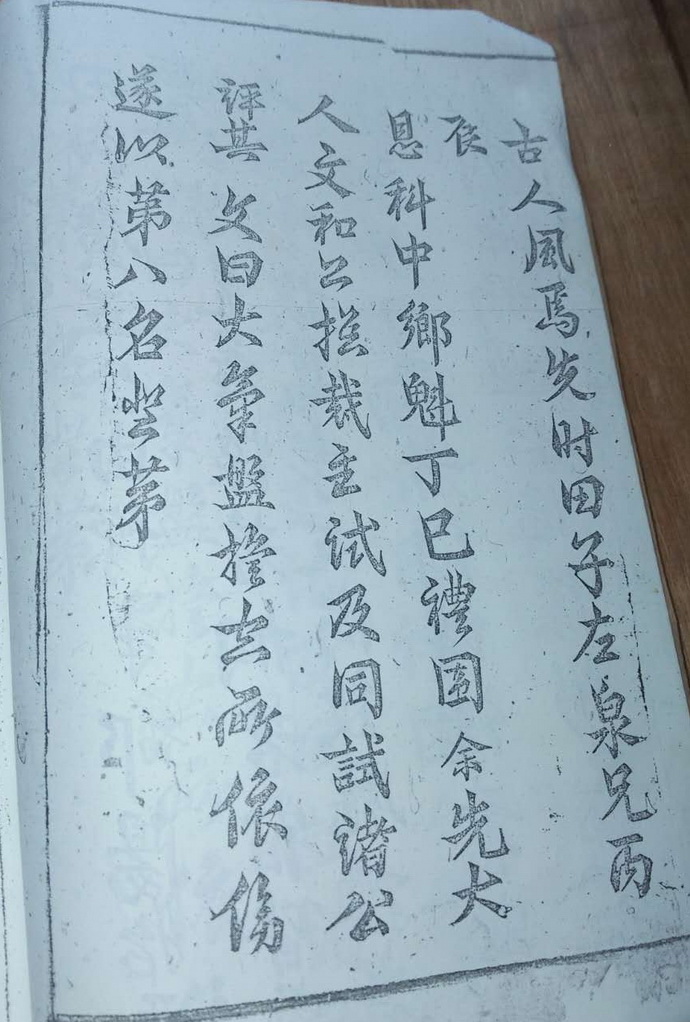 古人風焉先时田子左泉兄丙
辰
恩科中鄉魁丁巳禮闱余先大
人文和公掄裁主试及同試諸公
评其文曰大氣盤旋玄所依傍
遂以第八名登第